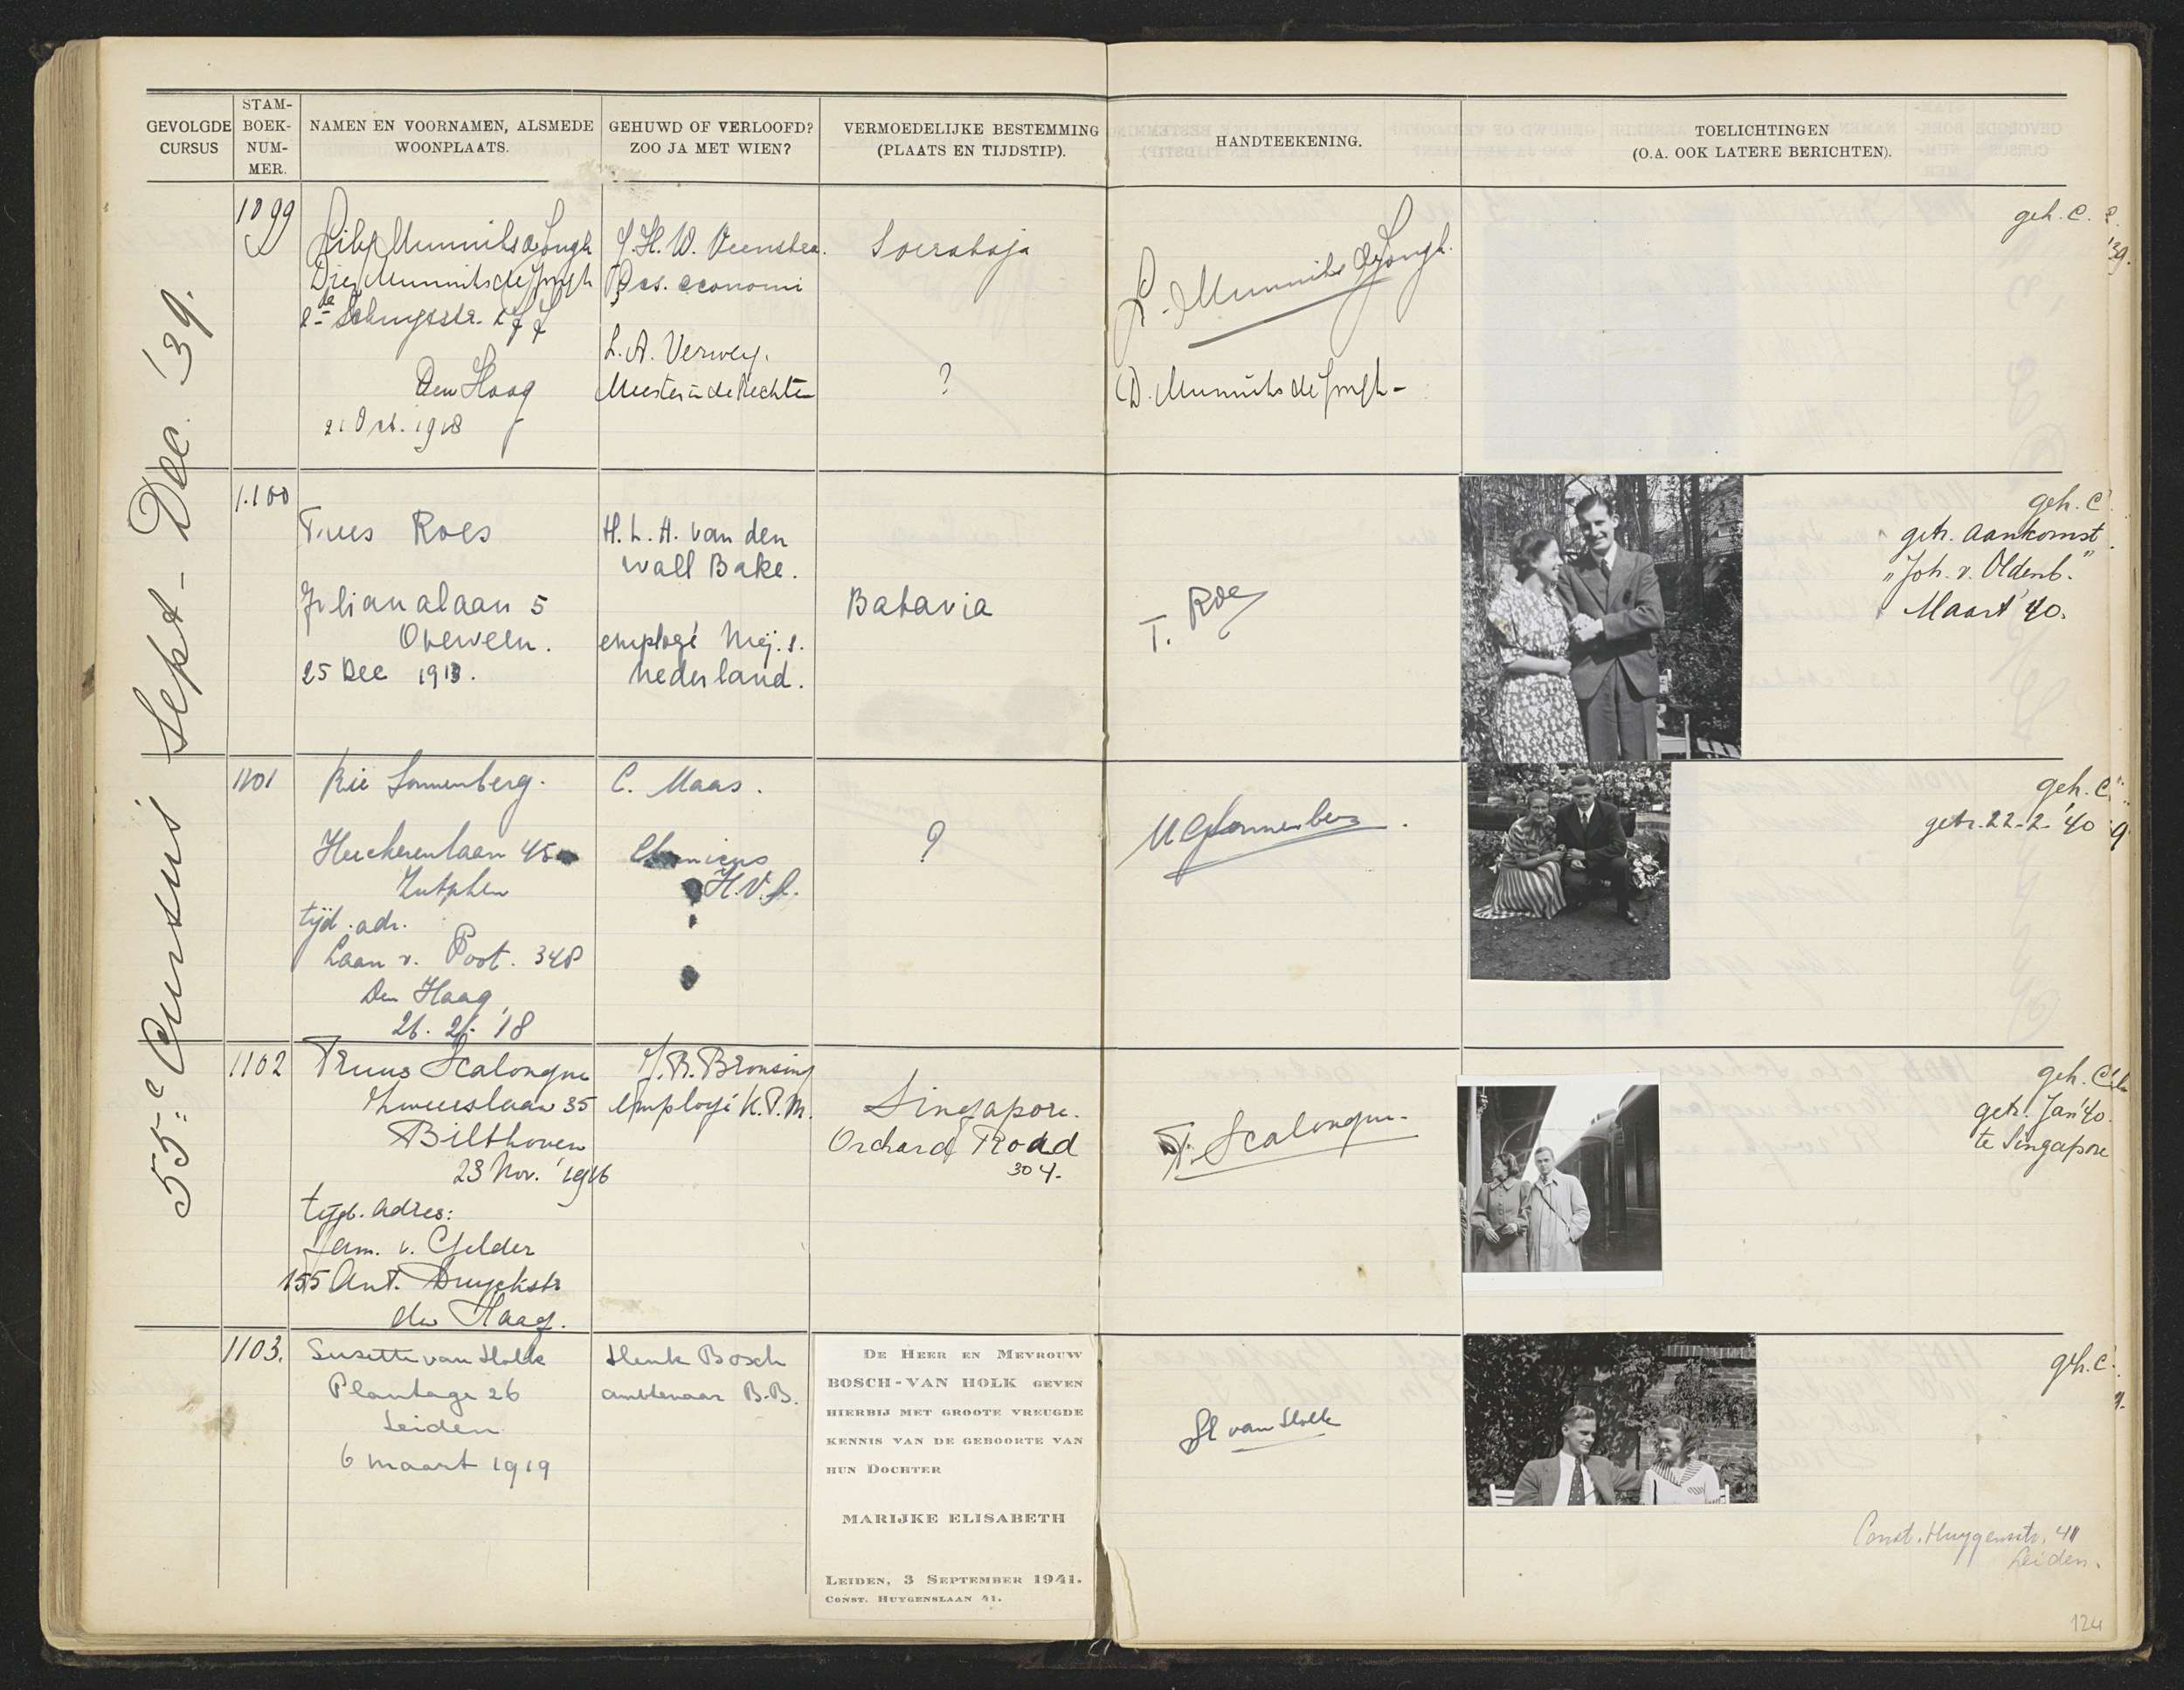 GEVOLGDE
CURSUS
STAM-
BOEK-
NUM-
MER.
NAMEN EN VOORNAMEN, ALSMEDE
WOONPLAATS.
GEHUWD OF VERLOOFD?
ZOO JA MET WIEN?
VERMOEDELIJKE BESTEMMING
(PLAATS EN TIJDSTIP).
HANDTEEKENING.
TOELICHTINGEN
(O.A. OOK LATERE BERICHTEN).
55e Cursus Sept - Dec. '39.
1099
Munnits de Jongh
Munnits de Jongh
Den Haag
21 Oct. 1918
J. H. W. Veenstra.
economi
L. A. Verwey.
Meester in de Rechten
Soerabaja
?
L. Munnits de Jongh.
D. Munnits de Jongh -
geh. C.
'39.
1.100
Truus Roes
Julianalaan 5
Overveen.
25 Dec 1913.
H. L. A. van den
Wall Bake.
employé Mij. s.
Nederland.
Batavia
T. Roes
geh. C.
getr. aankomst
"Joh. v. Oldenb."
Maart '40.
1101
Rie Sonnenberg.
Heeckerenlaan 45
Zutphen
tijd. adr.
Laan v. Poot. 348
Den Haag
26. 2. '18
C. Maas.
Chemicus
H.V.A.
?
Sonnenberg.
geh. C.
getr. 22-2-'40
1102
Truus Scalongne
35
Bilthoven
23 Nov. 1916
tijd. adres:
fam. v. Gelder
155 Ant. Duyckstr
den Haag.
J. R. Bronsing
employé K.P.M.
Singapore.
Orchard Road
304.
T. Scalongne.
geh. C.
getr. Jan '40.
te Singapore
1103.
Susette van Holk
Plantage 26
Leiden
6 maart 1919
Henk Bosch
ambtenaar B.B.
DE HEER EN MEVROUW
BOSCH - VAN HOLK GEVEN
HIERBIJ MET GROOTE VREUGDE
KENNIS VAN DE GEBOORTE VAN
HUN DOCHTER
MARIJKE ELISABETH
LEIDEN, 3 SEPTEMBER 1941.
CONST. HUYGENSLAAN 41.
van Holk
geh. C.
Const. Huygensstr. 41
Leiden.
124